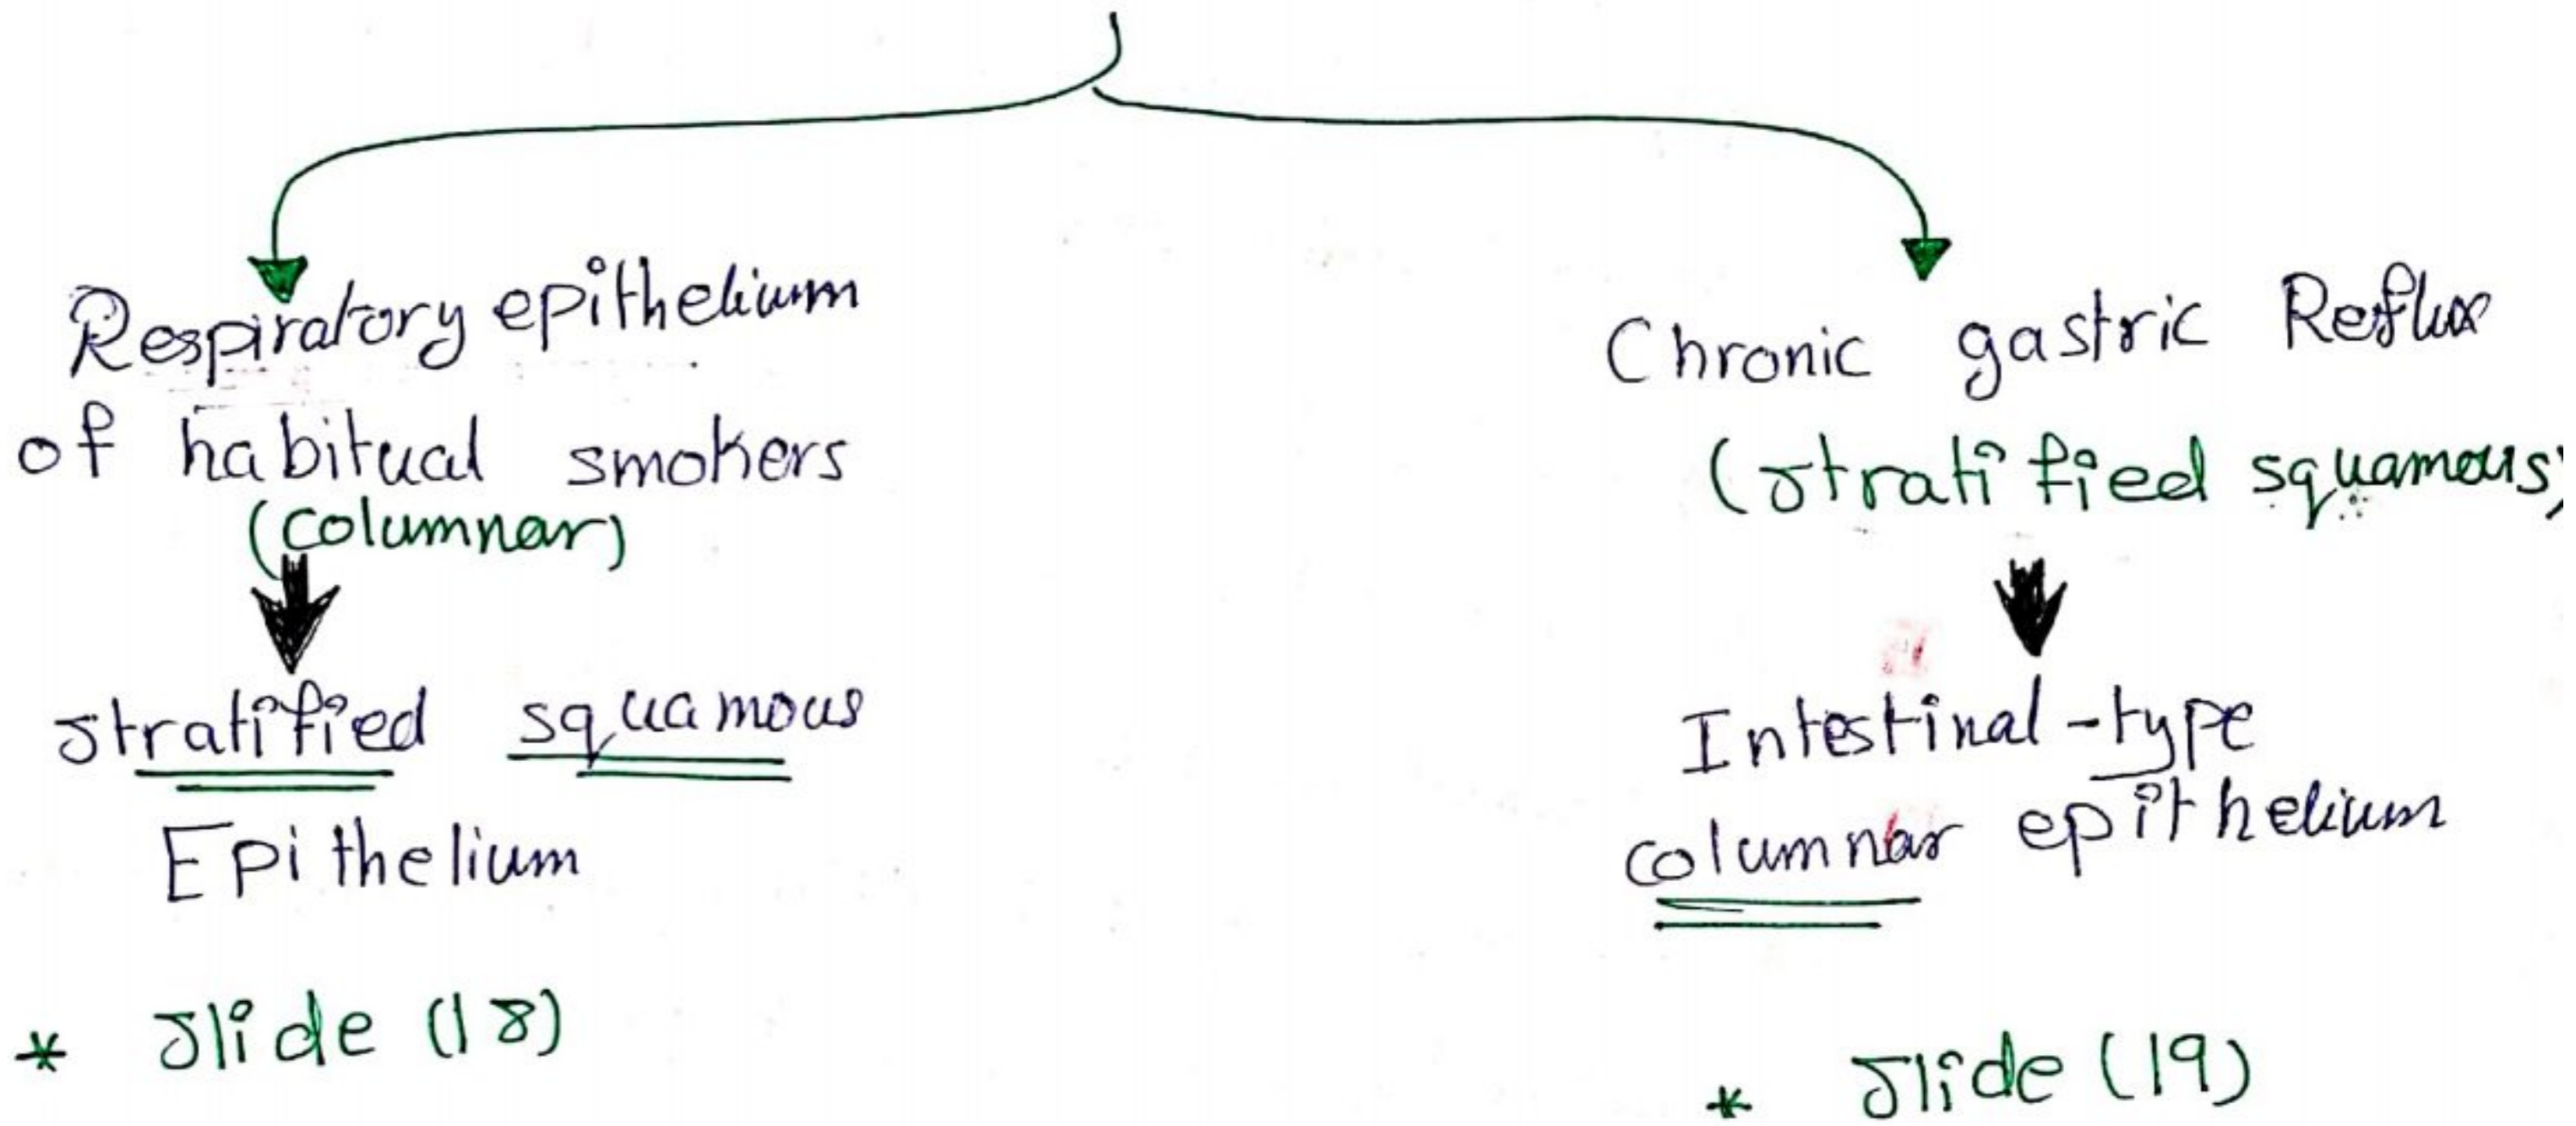 Respiratory epithelium
of habitual smokers
(columnar)
stratified squamous
Epithelium
* slide (18)
Chronic gastric Reflux
(stratified squamous)
Intestinal-type
columnar epithelium
* slide (19)